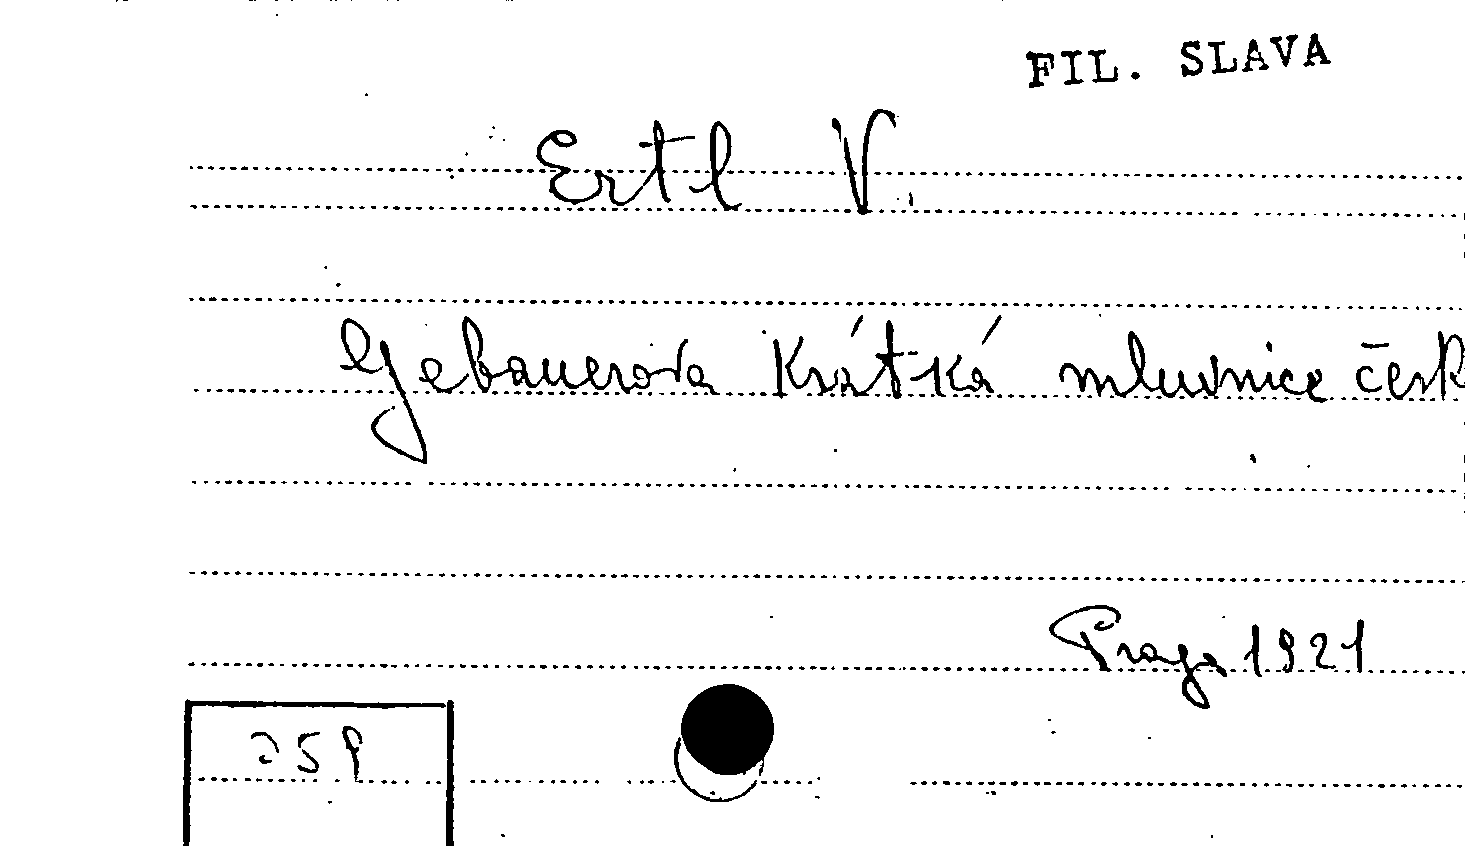 FIL. SLAVA
Ertl V.
Gebauerova Krátká mluvnice česk
Praga 1921
259